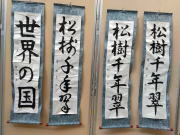 世界の国
松樹千年翠
松樹千年翠
松樹千年翠